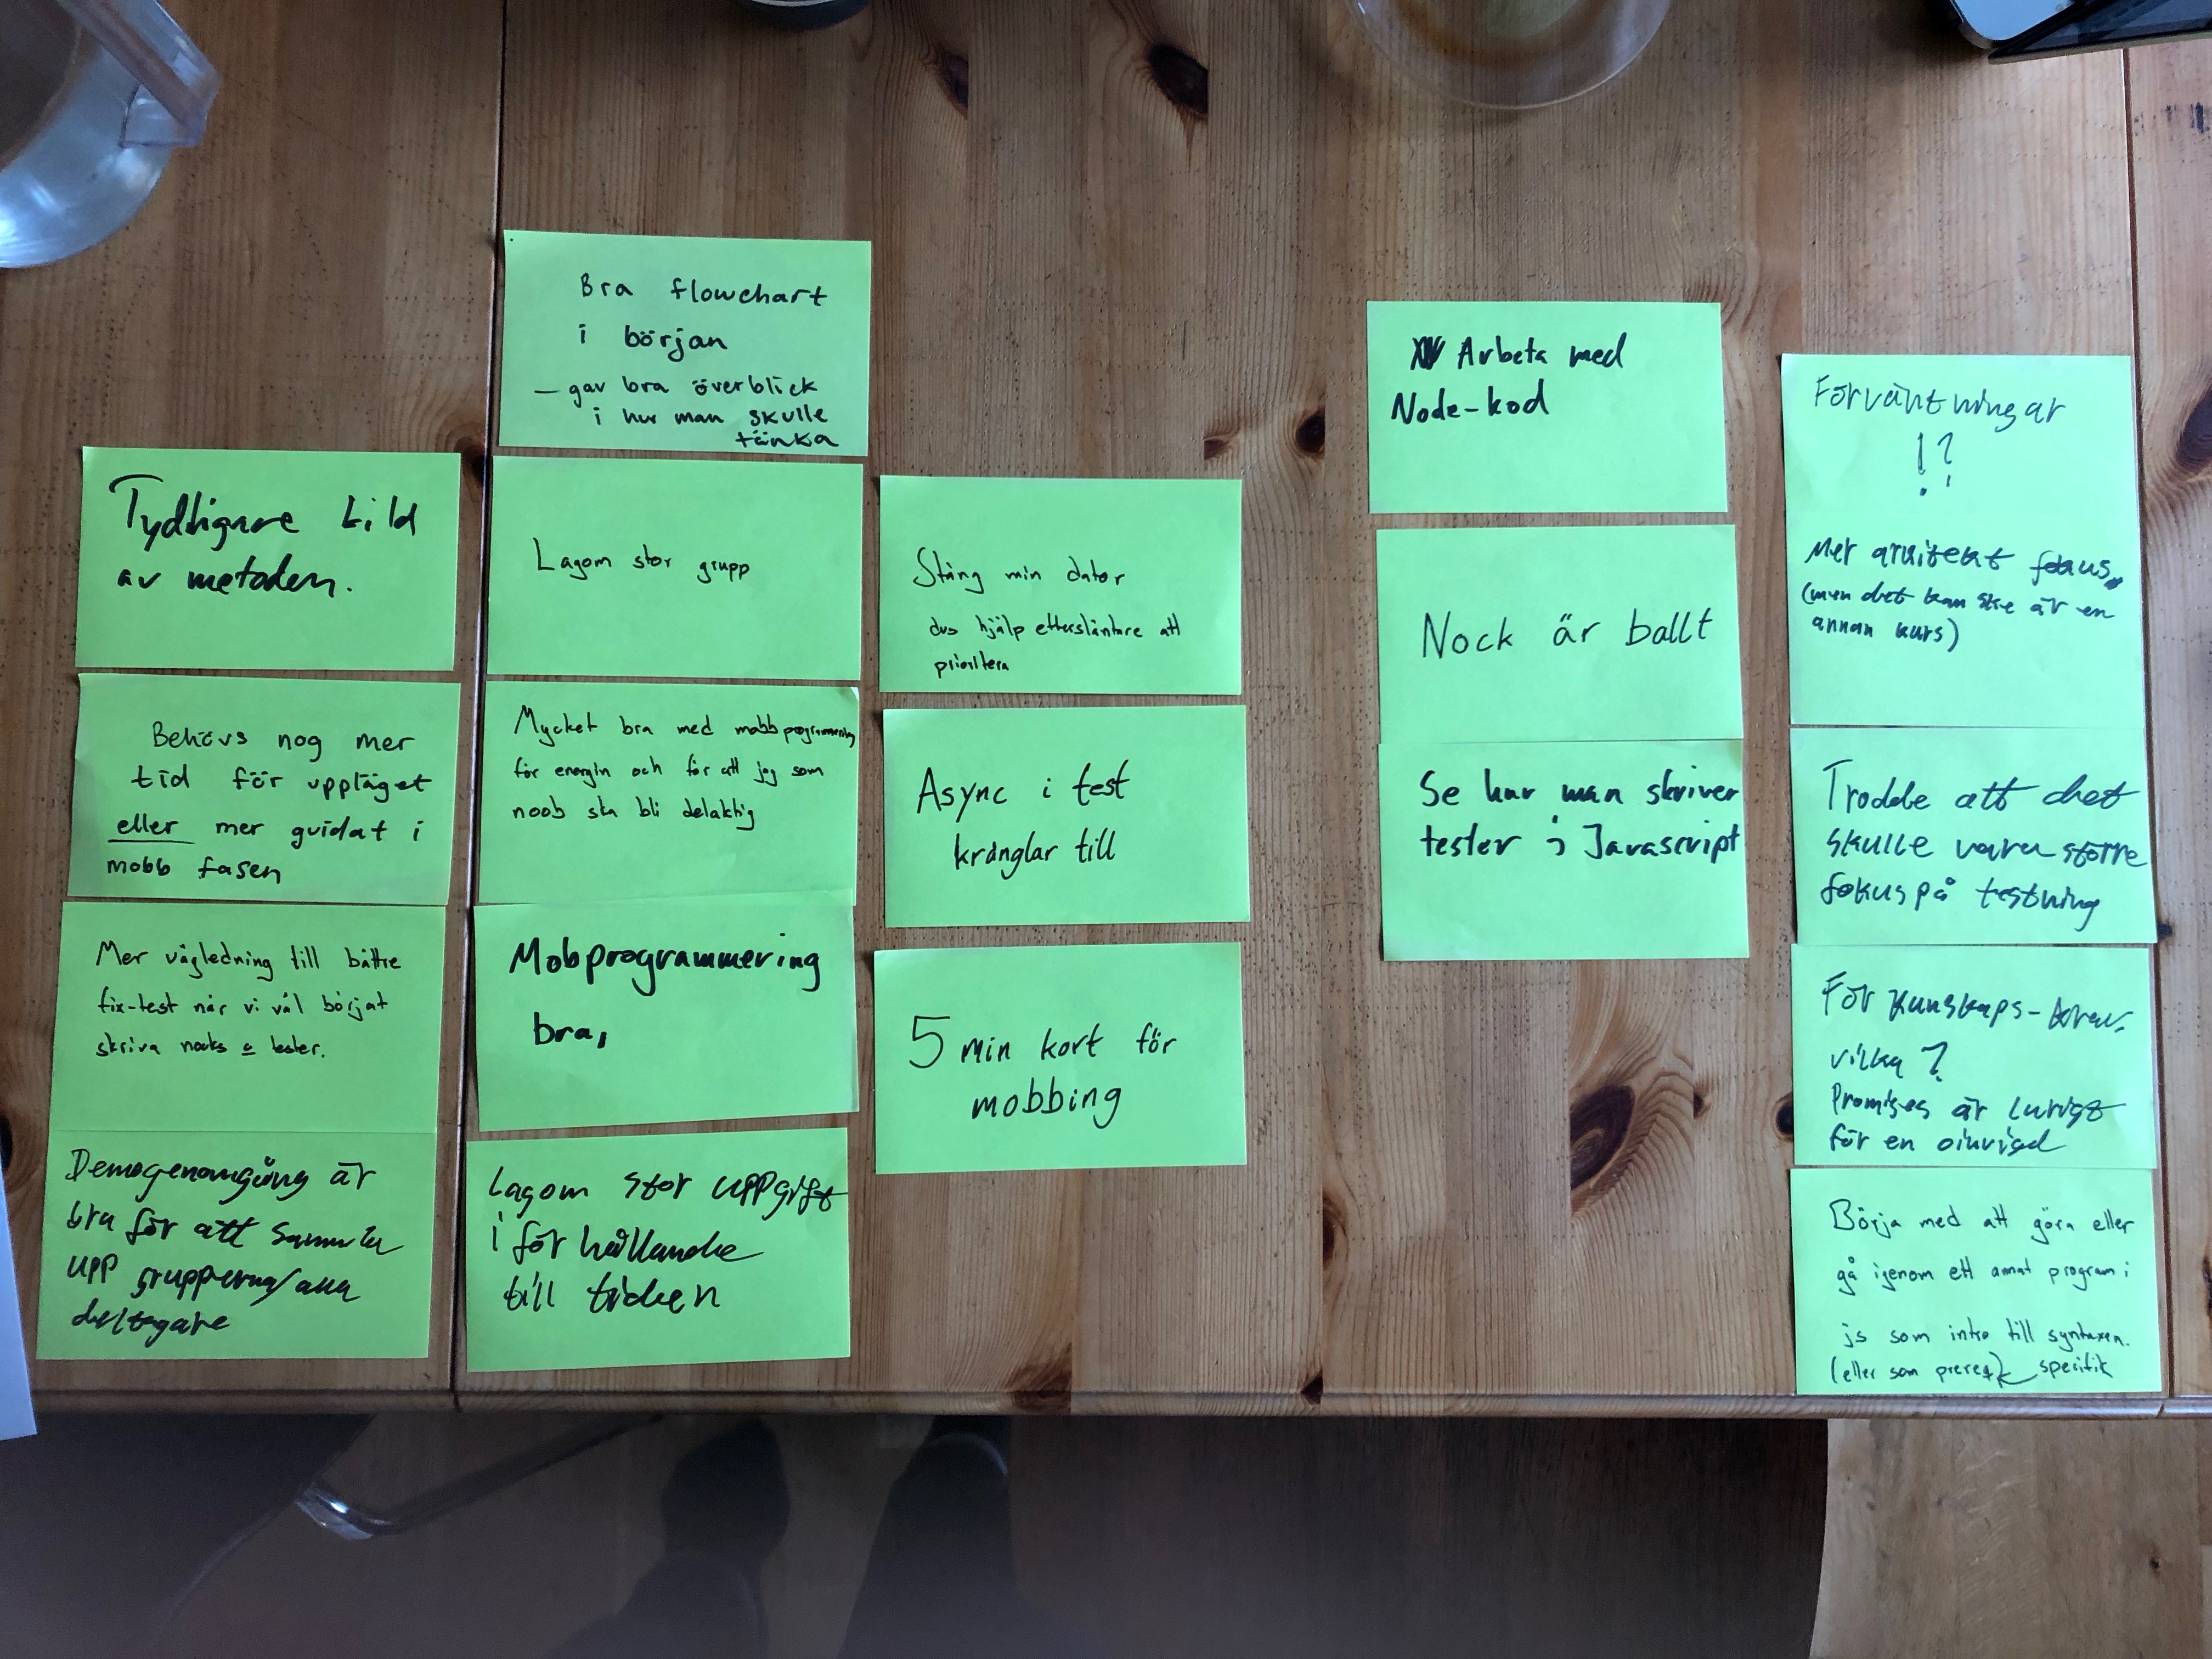 Tydligare bild
av metoden.
Behövs nog mer
tid för uppläget
eller mer guidat i
mobb fasen
Mer vägledning till bättre
fix-test när vi väl börjat
skriva nocks & tester.
Demogenomgång är
bra för att samla
upp grupperna/alla
deltagare
Bra flowchart
i början
– gav bra överblick
i hur man skulle
tänka
Lagom stor grupp
Mycket bra med mobbprogrammering
för energin och för att jag som
noob ska bli delaktig
Mobprogrammering
bra,
Lagom stor uppgift
i förhållande
till tiden
Stäng min dator
dvs hjälp eftersläntare att
prioritera
Async i test
krånglar till
5 min kort för
mobbing
Arbeta med
Node-kod
Nock är ballt
Se hur man skriver
tester i Javascript
Förväntningar
!?
Mer arkitekt fokus
(men det kanske är en
annan kurs)
Trodde att det
skulle vara större
fokus på testning
För kunskaps-krav,
vilka?
Promises är lurigt
för en oinvigd
Börja med att göra eller
gå igenom ett annat program i
js som intro till syntaxen.
(eller som prereq) specifik